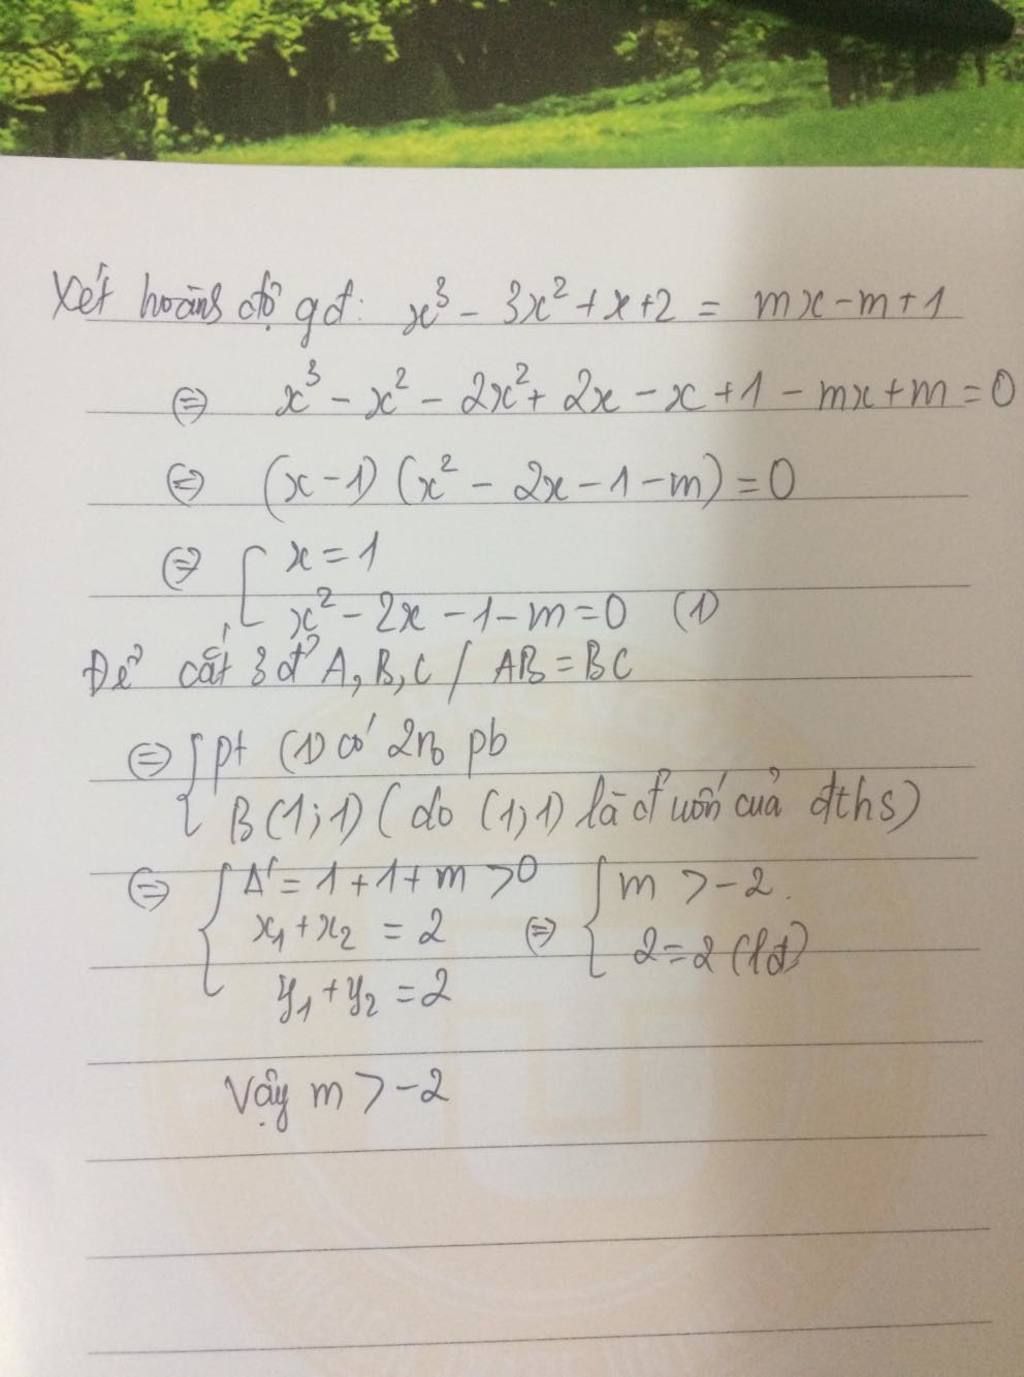 Xét hoành độ gđ: x³ - 3x² + x + 2 = mx - m + 1
⇔ x³ - x² - 2x² + 2x - x + 1 - mx + m = 0
⇔ (x-1) (x² - 2x - 1 - m) = 0
⇔ [ x = 1
x² - 2x - 1 - m = 0 (1)
Để cắt 3 đ' A, B, C / AB = BC
⇔ { pt (1) có 2no pb
B(1;1) (do (1;1) là đ' uốn của đths)
⇔ { Δ' = 1 + 1 + m > 0 ⇔ { m > -2.
x₁ + x₂ = 2 2 = 2 (lđ)
y₁ + y₂ = 2
Vậy m > -2